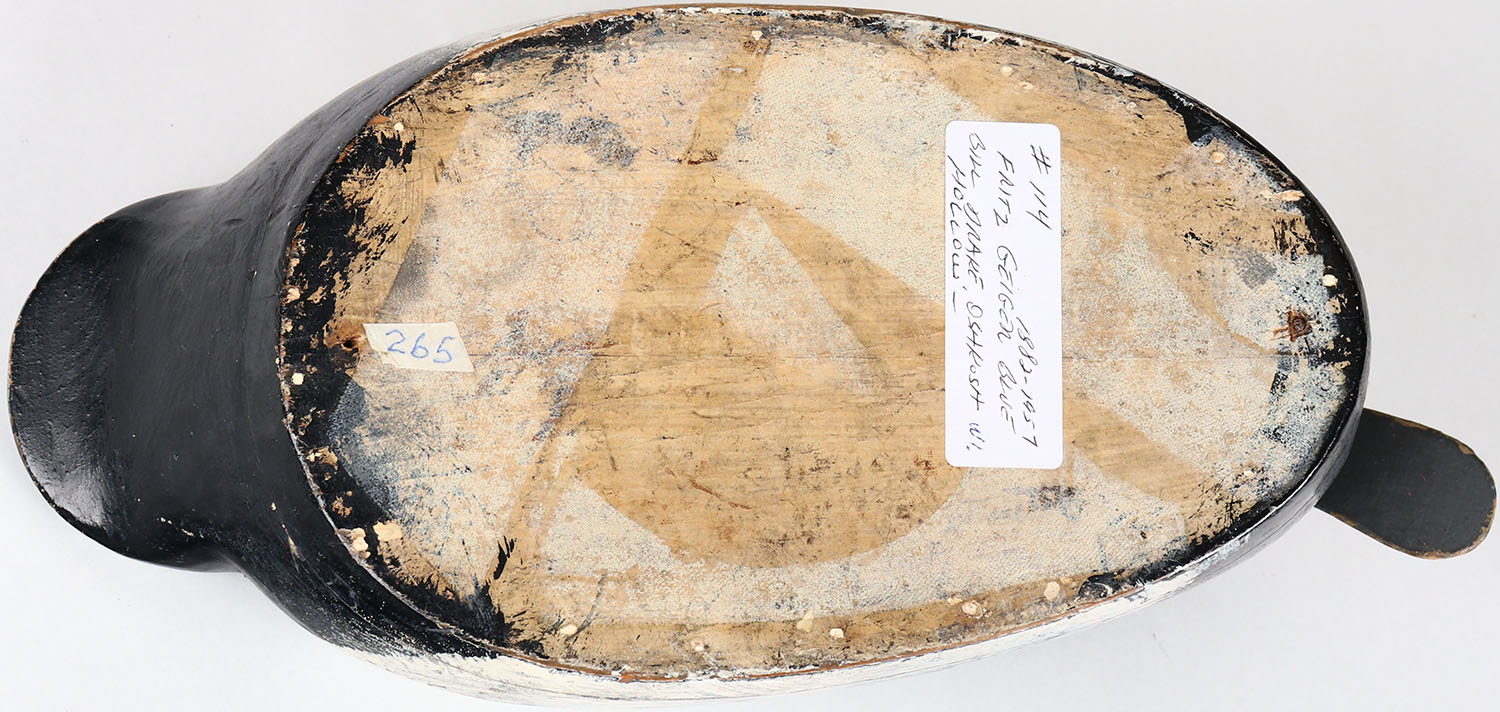 # 114
1882-1957
FRITZ GEIGER BLUE
BILL DRAKE, OSHKOSH WI.
HOLLOW -
265